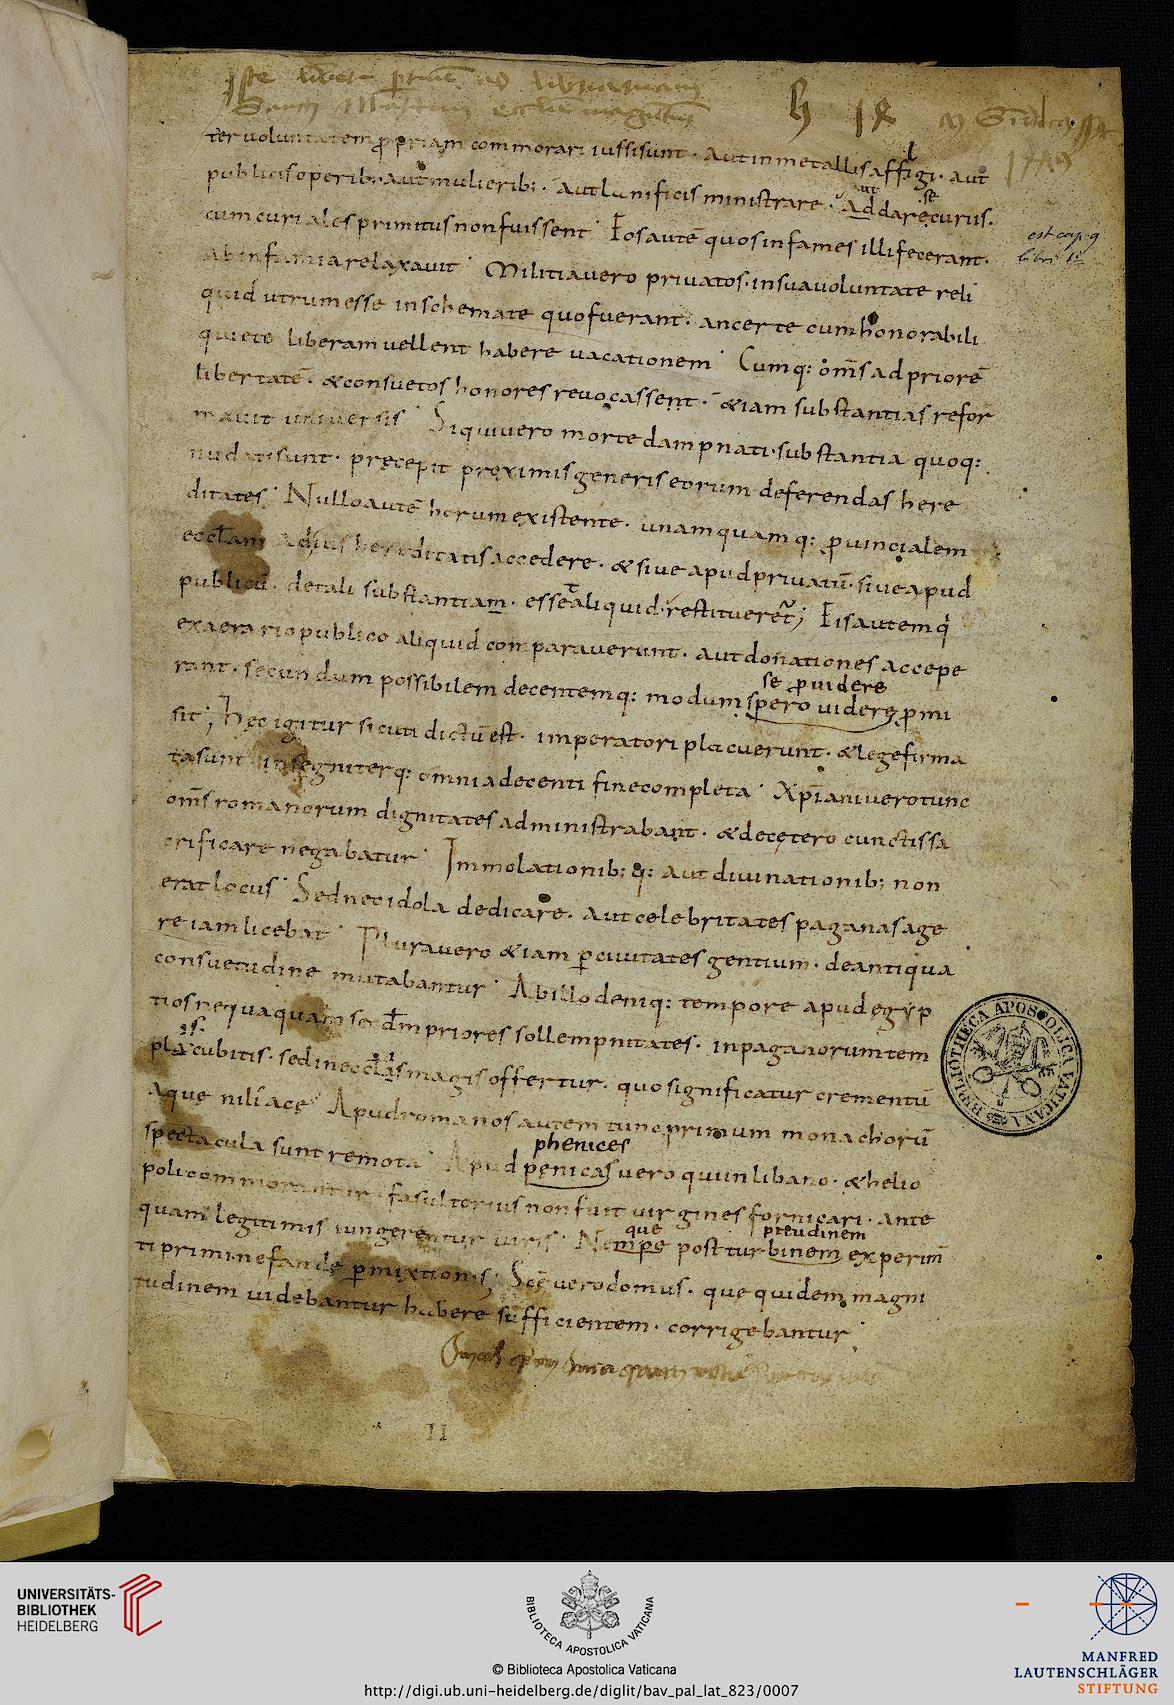 Iste liber ptinet ad librariam
Sancti Martini ecclesie maguntin
h 18 M Sindicus
1479
ter voluntatem ppriam commorari iussi sunt · aut in metallis affligi · aut
publicis operib; · aut mulierib; · aut lanificis ministrare · aut Addare se curiis ·
cum curiales primitus non fuissent · Eos autē quos infames illi fecerant ·
ab infamia relaxavit · Militia vero privatos · in sua voluntate reli
quid utrum esse in schemate quo fuerant · an certe cum honorabili
quiete liberam vellent habere vacationem · Cumq: om̄s ad priorē
libertatē · & consuetos honores revocassent · &iam substantias refor
mavit universis · Si qui vero morte dampnati · substantia quoq:
nudati sunt · pręcepit proximis generis eorum deferendas here
ditates · Nullo autē horum existente · unam quamq: pvincialem
eccl̄am ad ius hereditatis accedere · & sive apud privatū · sive apud
publicū · de tali substantiam · esset aliquid · restitueret̄; Eis autem q
ex aerario publico aliquid comparaverunt · aut donationes accepe
rant · secundum possibilem decentemq: modum spero videre pmi
se pvidere
sit; Hęc igitur sicuti dictū est · imperatori placuerunt · & lege firma
ta sunt insegniterq: omnia decenti fine completa · Xp̄iani vero tunc
om̄s romanorum dignitates administrabant · & de cętero cunctis sa
crificare negabatur · Immolationib; q: aut divinationib; non
erat locus · Sed nec idola dedicare · aut celebritates paganas age
re iam licebat · Plura vero &iam p civitates gentium · de antiqua
consuetudine mutabantur · Ab illo deniq: tempore apud egyp
tios nequaquam scdm priores sollempnitates · in paganorum tem
plis cubitis · sed in eccl̄iis magis offertur · quo significatur crementū
aque niliacę · Apud romanos autem tunc primum monachorū
spectacula sunt remota · Apud penicas vero qui in libano · & helio
phenices
poli commorantur · fas ulterius non fuit virgines fornicari · ante
quam legitimis iungerentur viris · Nempe post turbinem experim̄
que pteudinem
ti primi nefandę pmixtionis; Sc̄ę vero domus · que quidem magni
tudinem videbantur habere sufficientem · corrigebantur ·
est cap. 9
libri 1
11
BIBLIOTHECA APOSTOLICA VATICANA
UNIVERSITÄTS-
BIBLIOTHEK
HEIDELBERG
BIBLIOTECA APOSTOLICA VATICANA
© Biblioteca Apostolica Vaticana
http://digi.ub.uni-heidelberg.de/diglit/bav_pal_lat_823/0007
MANFRED
LAUTENSCHLÄGER
STIFTUNG